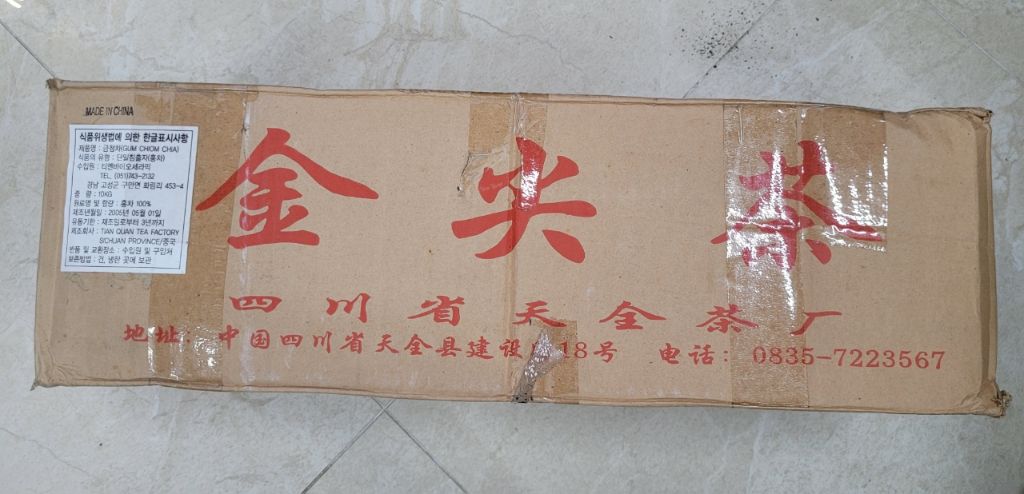 MADE IN CHINA
식품위생법에 의한 한글표시사항
제품명 : 금첨차(GUM CHIOM CHIA)
식품의 유형 : 단일침출차(홍차)
수입원 : 티엔바이오세라믹
TEL. (051)743-2132
경남 고성군 구만면 화림리 453-4
중 량 : 10KG
원료명 및 함량 : 홍차 100%
제조년월일 : 2005년 05월 01일
유통기한 : 제조일로부터 3년까지
제조회사 : TIAN QUAN TEA FACTORY
SICHUAN PROVINCE/중국
반품 및 교환장소 : 수입원 및 구입처
보존방법 : 건, 냉한 곳에 보관
金尖茶
四川省天全茶厂
地址: 中国四川省天全县建设 18号 电话: 0835-7223567